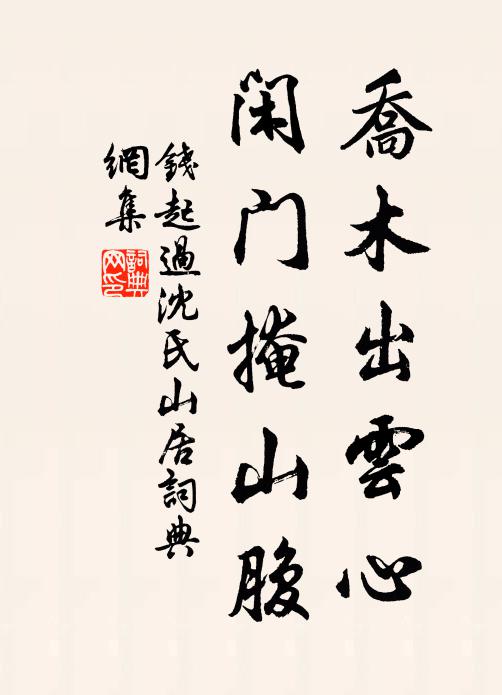 喬木出雲心
閑門掩山腹
錢起過沈氏山居詞典
網集
詞典
网印